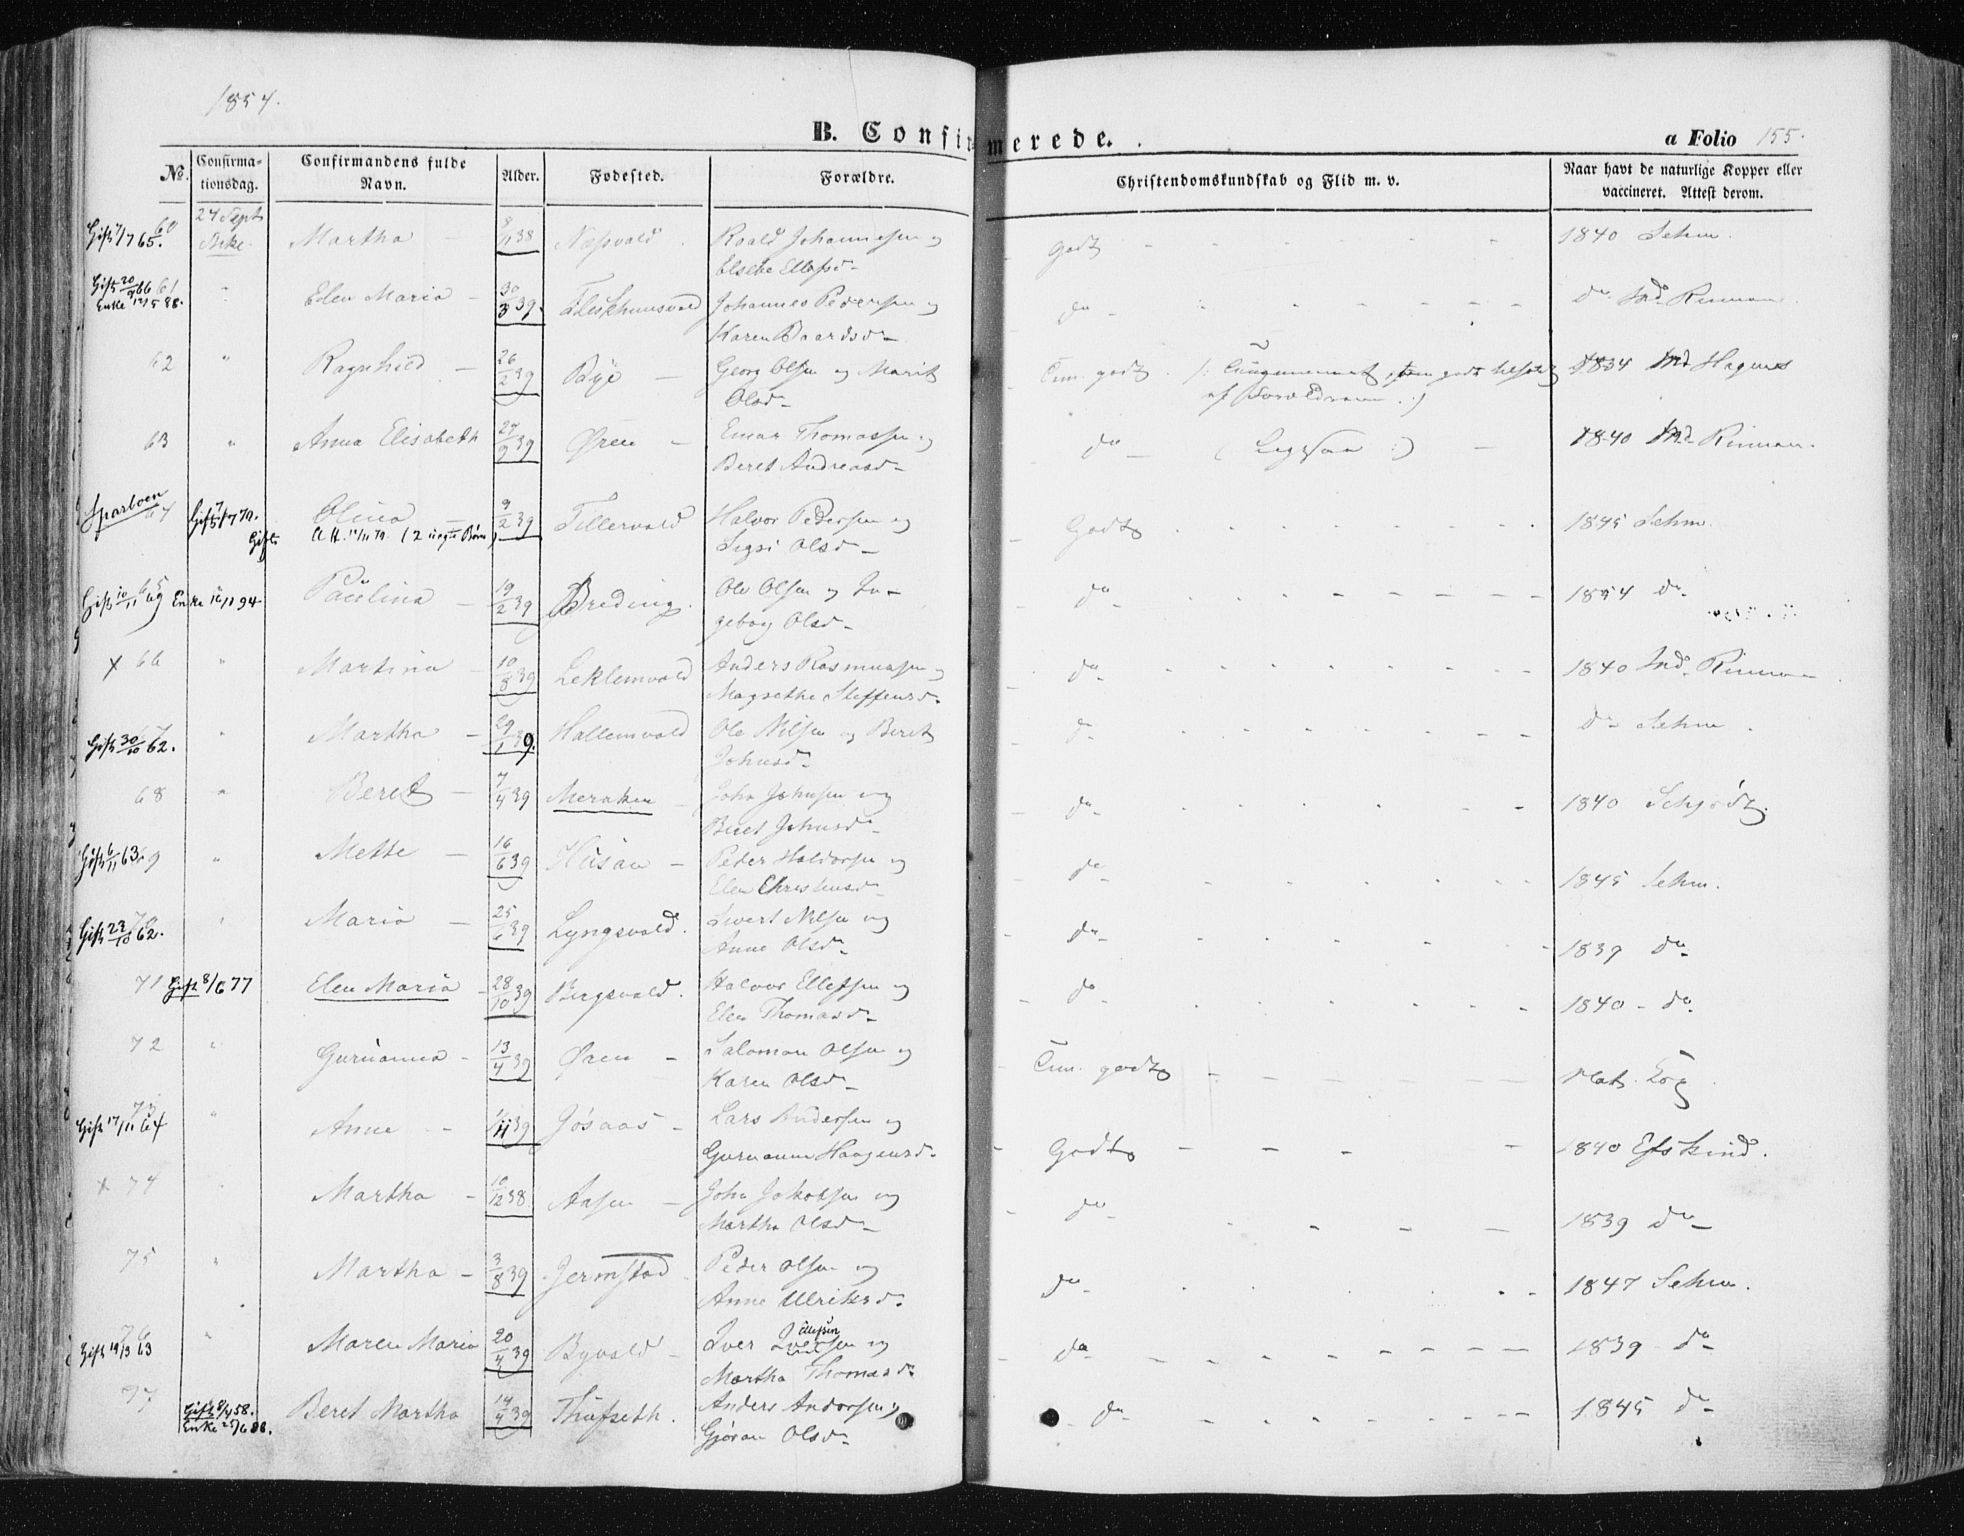 1854.
B. Confirmerede.
a Folio 155.
No. Confirma-tionsdag. Confirmandens fulde Navn. Alder. Fodested. Forældre. Christendomskundskab og Flid m. v. Naar havt de naturlige Kopper eller vaccineret. Attest derom.
Gift 7/7 65. 60 24 Sept Martha 38 Næsvald Roald Johannesen og godt 1840 Sehm.
Elsebe Ellefsd.
Gift 20/9 66 61 " Elen Maria 30/3 39. Fleskhuusvald Johannes Pedersen og do 
do Md. Rinnan
Enke 12/5 88.
Karen Baardsd.
62 " Ragnhild 26/2 39 Bye Georg Olsen og Marit godt 1834 Md Hagnes
Olsd.
63 " Anna Elisabeth 27/9 39 Øren Einar Thomassen og do (Ligesaa :) 1840 Md. Rinnan.
Beret Andreasd.
Sparboen 64 Olina 9/2 39 Tillervald Halvor Pedersen og Godt 1845 Sehm.
Gift Att. 14/11 79. (2 uægte Børn) Sigri Olsd.
Gift 10/11 69 65 Enke 12/11 94 Paulina 19/2 39 Breding. Ole Olsen og In- do 1854 do
geborg Olsd.
x 66 " Martina 10/8 39 Leklemvald Anders Rasmussen og do 1840 Md. Rinnan
Magrethe Steffensd.
Gift 30/10 62. 67 " Martha 29/1 39. Hallemvald Ole Nilsen og Beret do do Sehm.
Johnsd.
68 " Beret 7/4 39 Meraker John Johnsen og do 1840 Schjødt.
Beret Johnsd.
Gift 6/11 63 69 " Mette 16/6 39 Husan Peder Haldorsen og do 1845 Sehm.
Elen Christensd.
Gift 23/10 62. 70 " Maria 25/6 39 Lyngsvald. Sivert Nilsen og do 1839 do
Anne Olsd.
71 Gift 8/6 77 Elen Maria 28/10 39 Bergsvald. Halvor Ellefsen og do 1840 do
Elen Thomasd.
72 " Guruanna 13/4 39 Øren Salomon Olsen og godt
Karen Olsd.
Gift 17/11 64 73 " Anne 39 Jøsaas Lars Andersen og Godt 1840 Efskind.
Guruanna Haagensd.
x 74 Martha 10/12 38 Aasen John Jakobsen og do 1839 do
Martha Olsd.
75 " Martha 3/8 39 Jermstad Peder Olsen og do 1847 Sehm.
Anne Ulriksd.
Gift 19/3 63 76 " Maren Maria 20/4 39 Byvald Iver Iversen og do 1839 do
Ellefsen
Martha Thomasd.
77 Gift 8/4 58. Beret Martha 14/4 39 Thufseth. Anders Andersen og do 1845 do
Enke 25/6 88. Gjøran Olsd.